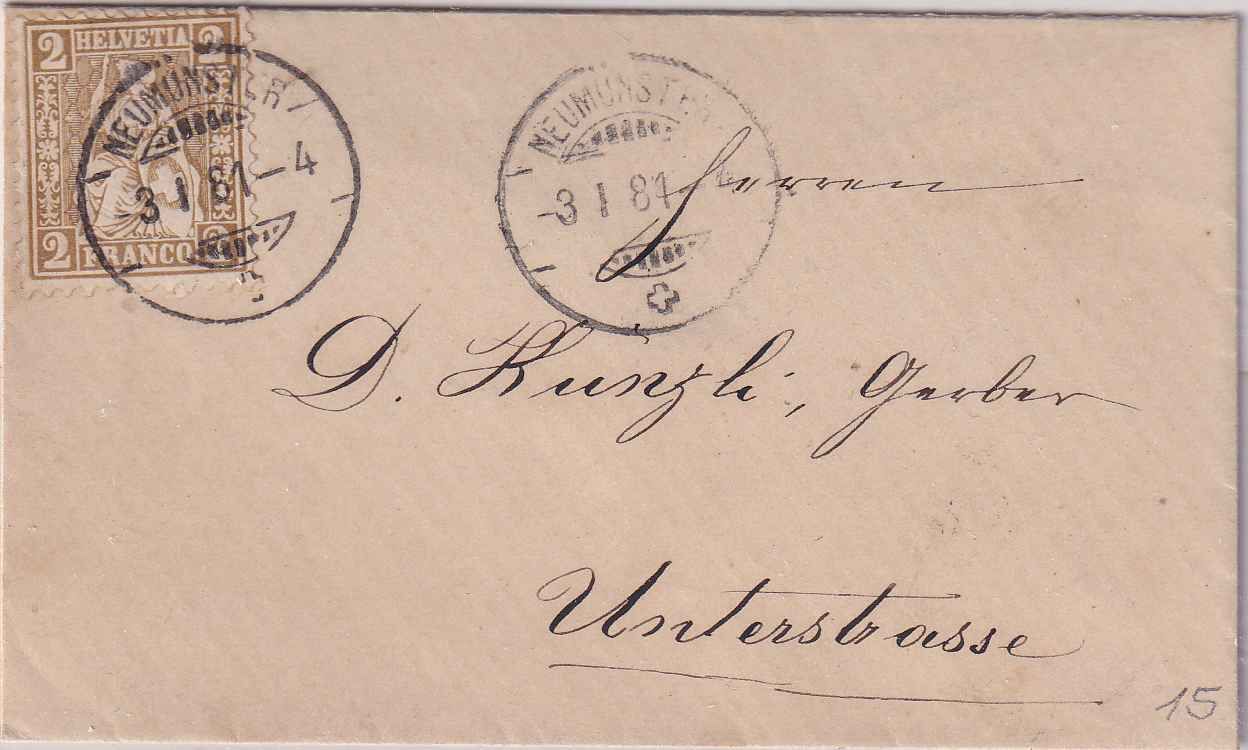 2 HELVETIA 2
2 FRANCO 2
NEUMÜNSTER
3 I 81 – 4
NEUMÜNSTER
-3 I 81 - 4
Herren
D. Künzli, Gerber
Unterstrasse
15